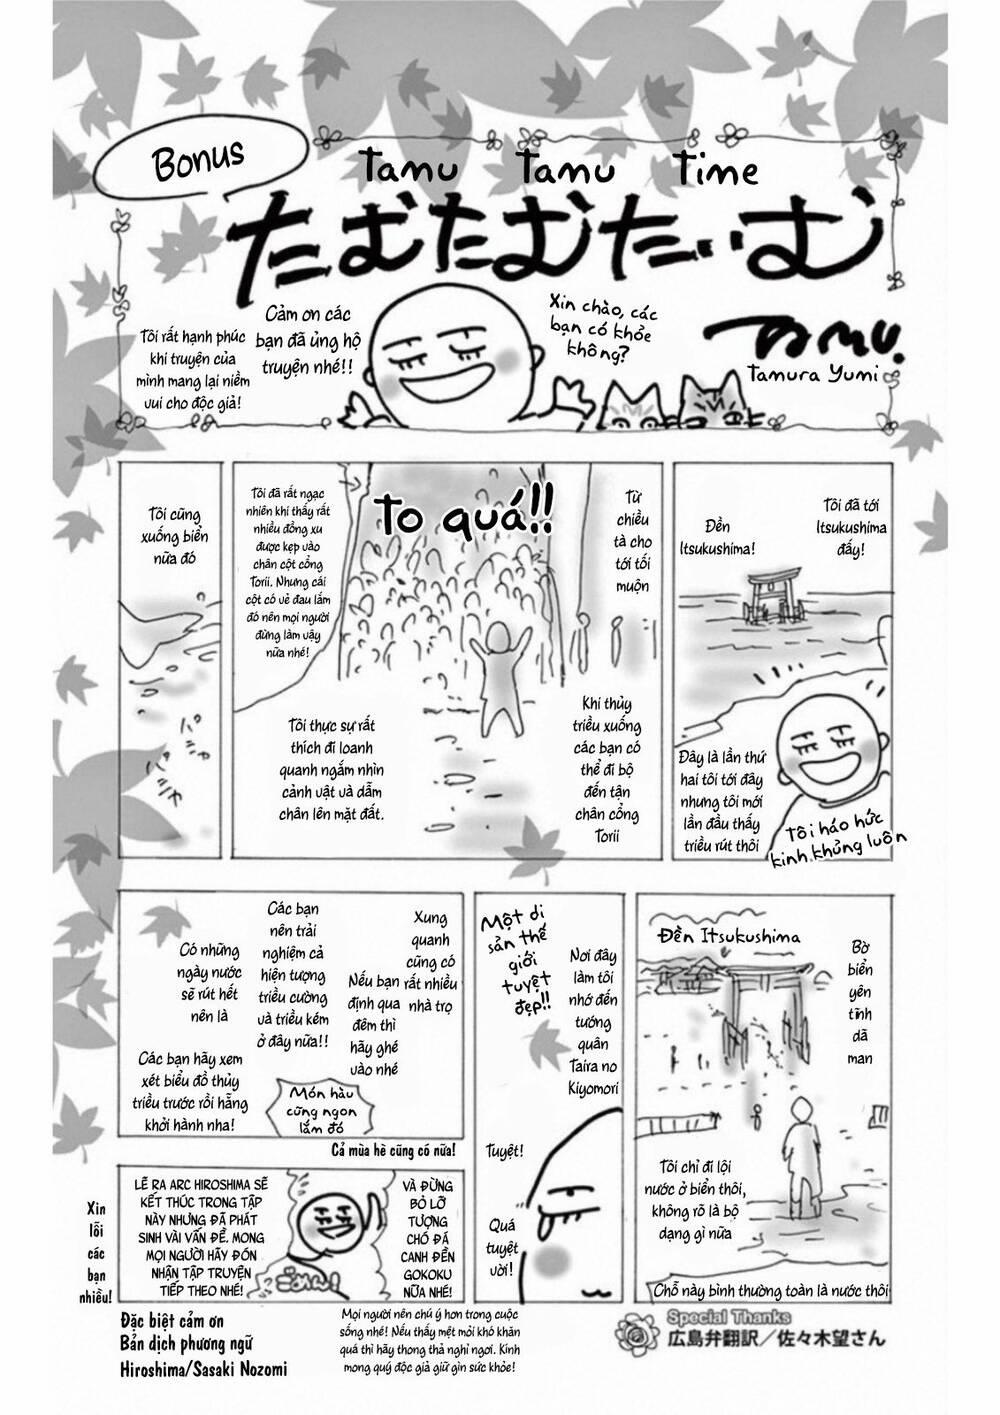 Bonus
Tamu Tamu Time
たむたむたいむ
Xin chào, các
bạn có khỏe
không?
TAMU.
Tamura Yumi
Cảm ơn các
bạn đã ủng hộ
truyện nhé!!
Tôi rất hạnh phúc
khi truyện của
mình mang lại niềm
vui cho độc giả!
Tôi đã tới
Itsukushima
đấy!
Đền
Itsukushima!
Đây là lần thứ
hai tôi tới đây
nhưng tôi mới
lần đầu thấy
triều rút thôi
Tôi háo hức
kinh khủng luôn
Từ
chiều
tà cho
tới tối
muộn
To quá!!
Tôi đã rất ngạc
nhiên khi thấy rất
nhiều đồng xu
được kẹp vào
chân cột cổng
Torii. Nhưng cái
cột có vẻ đau lắm
đó nên mọi người
đừng làm vậy
nữa nhé!
Khi thủy
triều xuống
các bạn có
thể đi bộ
đến tận
chân cổng
Torii
Tôi thực sự rất
thích đi loanh
quanh ngắm nhìn
cảnh vật và dẫm
chân lên mặt đất.
Tôi cũng
xuống biển
nữa đó
パシャ
パシャ
Bờ
biển
yên
tĩnh
dã
man
Đền Itsukushima
Tôi chỉ đi lội
nước ở biển thôi,
không rõ là bộ
dạng gì nữa
Chỗ này bình thường toàn là nước thôi
Một di
sản thế
giới
tuyệt
đẹp!!
Nơi đây
làm tôi
nhớ đến
tướng
quân
Taira no
Kiyomori
Tuyệt!
Quá
tuyệt
vời!
Xung
quanh
cũng có
rất nhiều
nhà trọ
Nếu bạn
định qua
đêm thì
hãy ghé
vào nhé
Các bạn
nên trải
nghiệm cả
hiện tượng
triều cường
và triều kém
ở đây nữa!!
Có những
ngày nước
sẽ rút hết
nên là
Các bạn hãy xem
xét biểu đồ thủy
triều trước rồi hẵng
khởi hành nha!
Món hàu
cũng ngon
lắm đó
Cả mùa hè cũng có nữa!
VÀ ĐỪNG
BỎ LỠ
TƯỢNG
CHÓ ĐÁ
CANH ĐỀN
GOKOKU
NỮA NHÉ!
ごめん!
LẼ RA ARC HIROSHIMA SẼ
KẾT THÚC TRONG TẬP
NÀY NHƯNG ĐÃ PHÁT
SINH VÀI VẤN ĐỀ. MONG
MỌI NGƯỜI HÃY ĐÓN
NHẬN TẬP TRUYỆN
TIẾP THEO NHÉ!
Xin
lỗi
các
bạn
nhiều!
Đặc biệt cảm ơn
Bản dịch phương ngữ
Hiroshima/Sasaki Nozomi
Mọi người nên chú ý hơn trong cuộc
sống nhé! Nếu thấy mệt mỏi khó khăn
quá thì hãy thong thả nghỉ ngơi. Kính
mong quý độc giả giữ gìn sức khỏe!
Special Thanks
広島弁翻訳／佐々木望さん